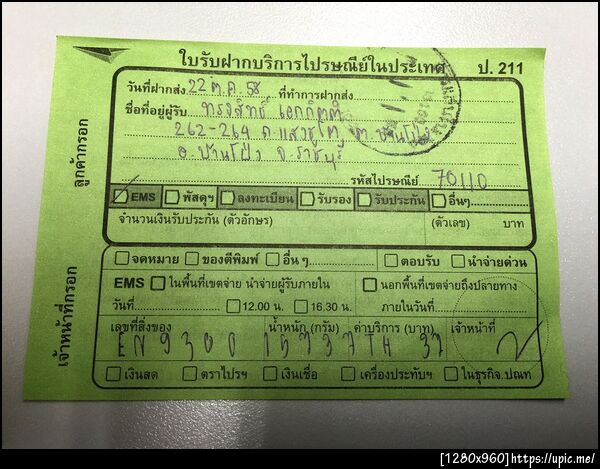 ใบรับฝากบริการไปรษณีย์ในประเทศ ป. 211
วันที่ฝากส่ง 22 ต.ค. 58 ที่ทำการฝากส่ง
ชื่อที่อยู่ผู้รับ ทรงสิทธิ์ เอกกิตติ
262-264 ถ.แสงชูโต ต.บ้านโป่ง
อ.บ้านโป่ง จ.ราชบุรี
รหัสไปรษณีย์ 70110
EMS พัสดุฯ ลงทะเบียน รับรอง รับประกัน อื่นๆ
จำนวนเงินรับประกัน (ตัวอักษร) (ตัวเลข) บาท
ลูกค้ากรอก
จดหมาย ของตีพิมพ์ อื่น ๆ ตอบรับ นำจ่ายด่วน
EMS ในพื้นที่เขตจ่าย นำจ่ายผู้รับภายใน นอกพื้นที่เขตจ่ายถึงปลายทาง
วันที่ 12.00 น. 16.30 น. ภายในวันที่
เลขที่สิ่งของ น้ำหนัก (กรัม) ค่าบริการ (บาท) เจ้าหน้าที่
EN 9300 15737TH 37
เงินสด ตราไปรฯ เงินเชื่อ เครื่องประทับฯ ในธุรกิจ.ปณท
เจ้าหน้าที่กรอก
[1280x960]https://upic.me/